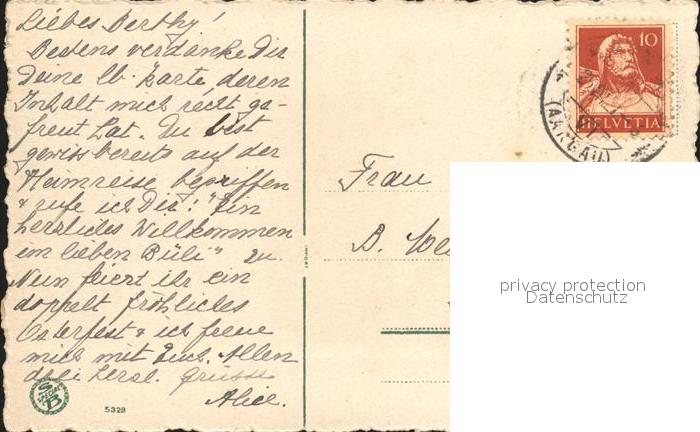 Liebes Berthy!
Bestens verdanke Dir
Deine lb. Karte, deren
Inhalt mich recht ge-
freut hat. Du bist
gewiss bereits auf der
Heimreise begriffen
& rufe ich Dir: "Ein
herzliches Willkommen
im lieben Büli" zu.
Nun feiert ihr ein
doppelt fröhliches
Osterfest & ich freue
mich mit Euch. Allen
herzl. Grüsse
Alice.
S SPECIAL B
5328
Frau
B.
10
HELVETIA
(AARGAU)
privacy protection
Datenschutz